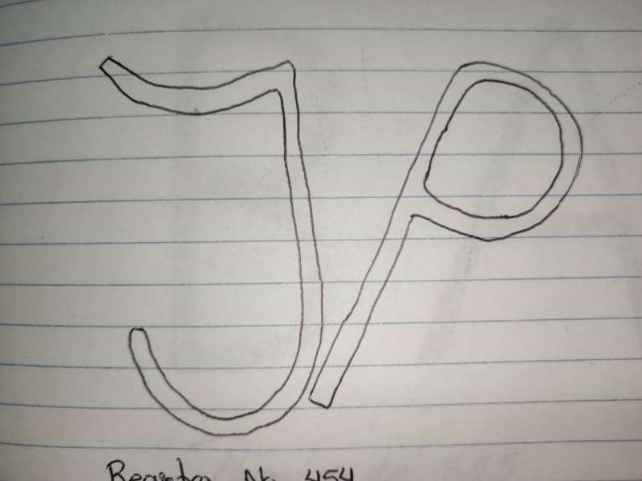 JP
Register No 454